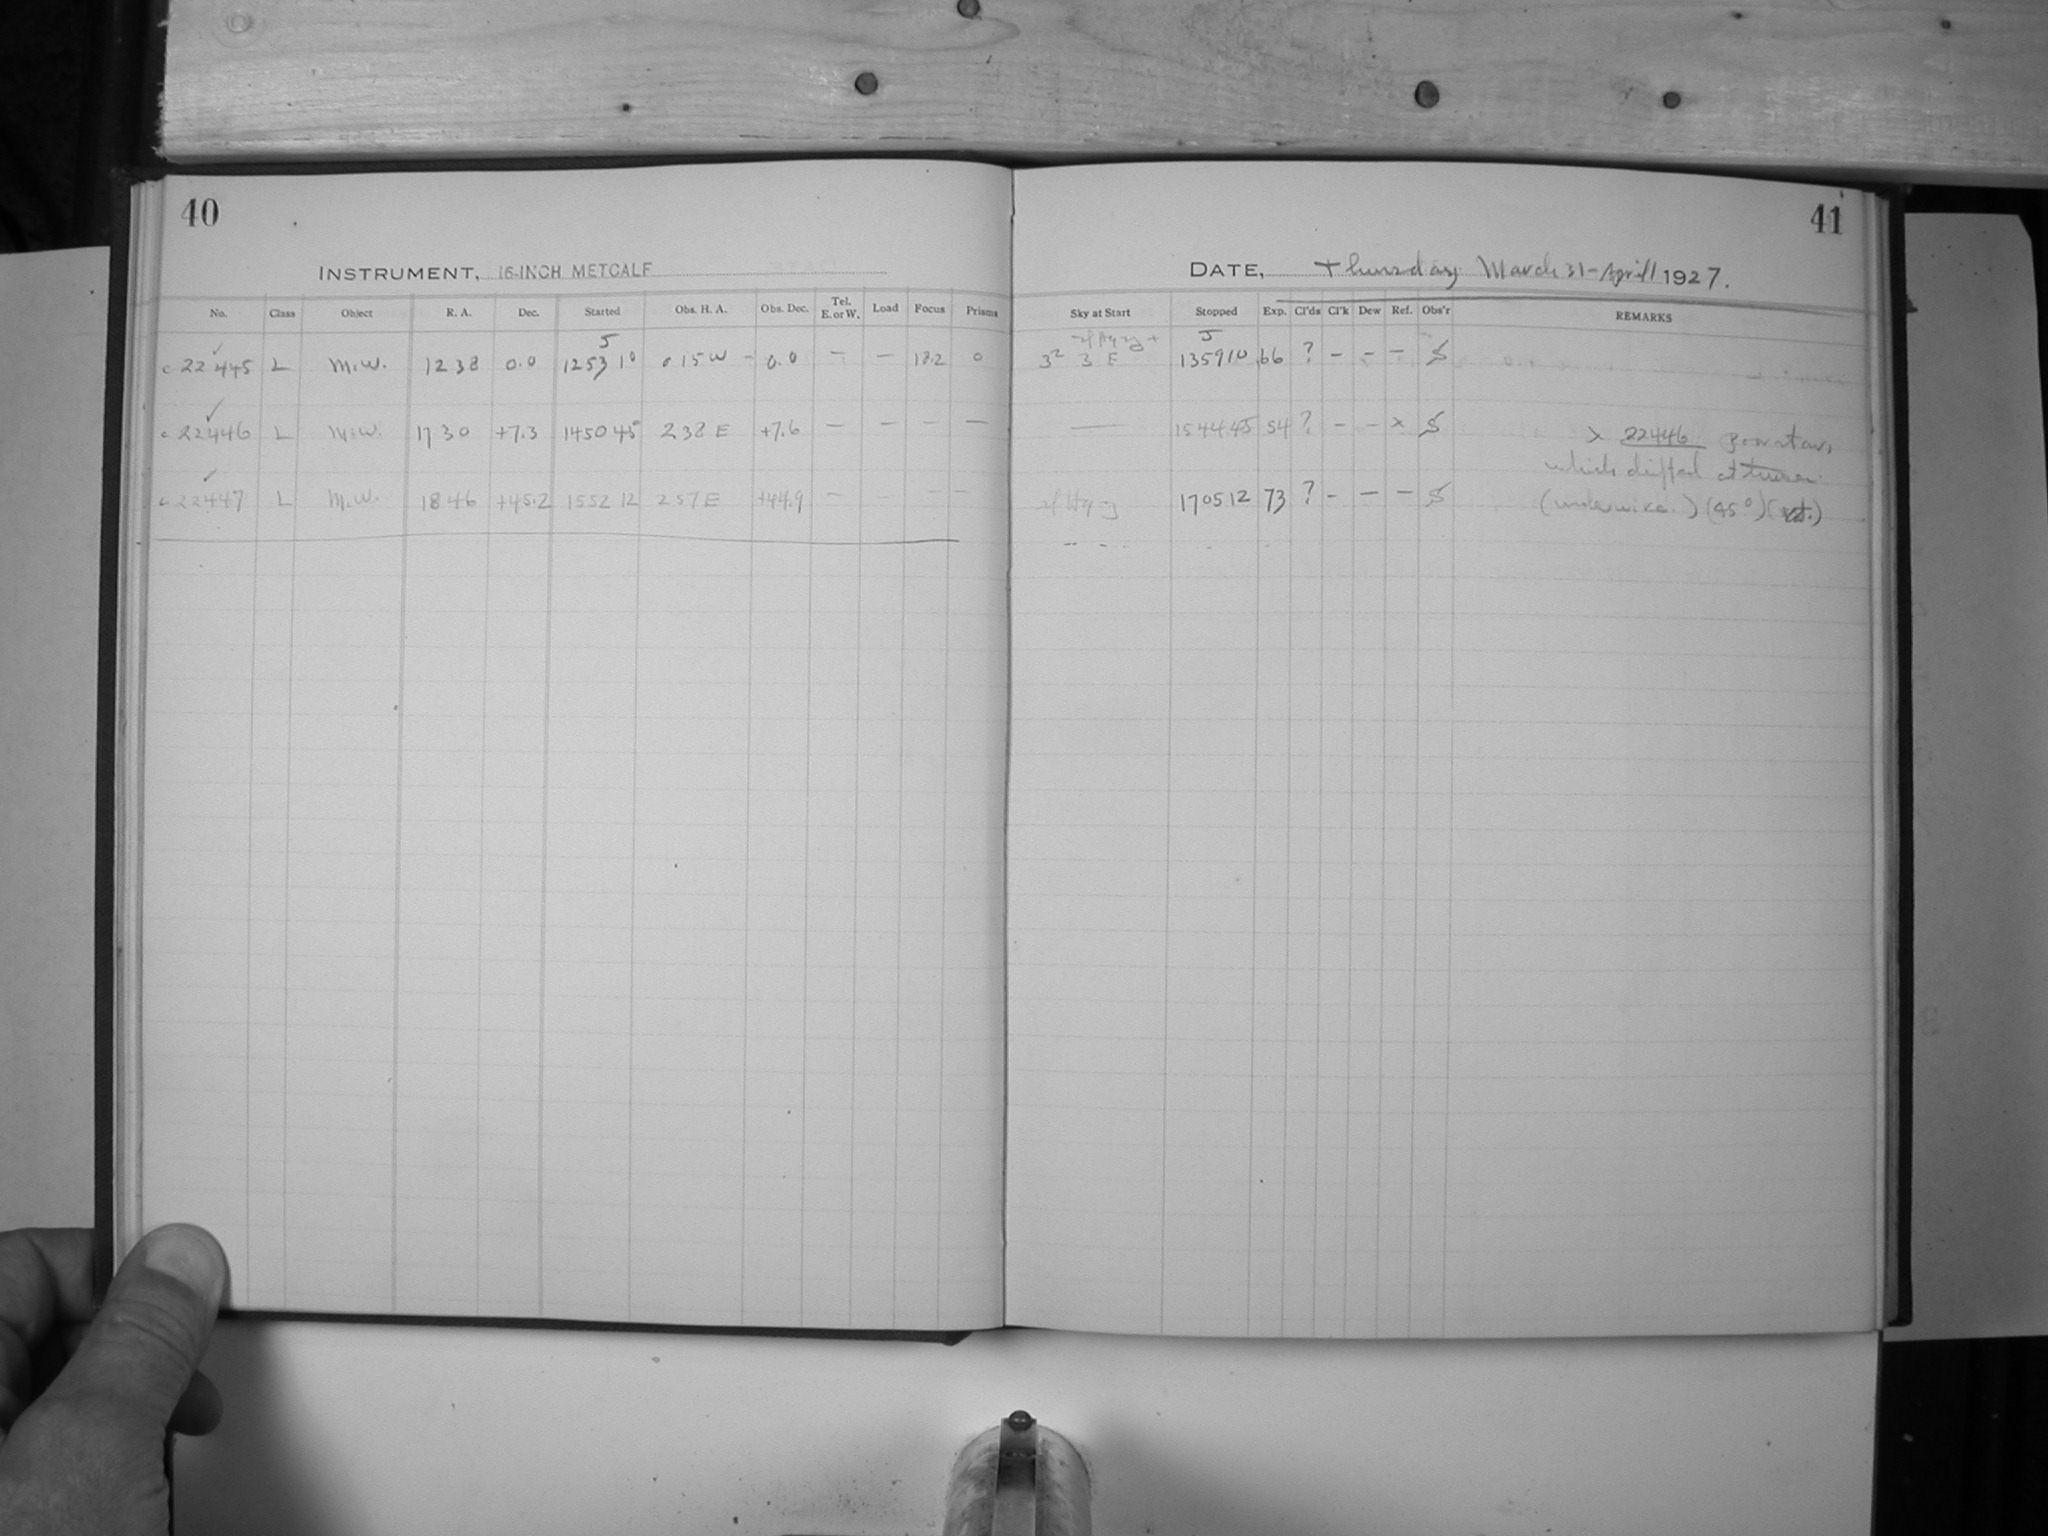 40
41
INSTRUMENT, 16-INCH METCALF
DATE, Thursday March 31-April 1 1927.
No. Class Object R. A. Dec. Started Obs. H. A. Obs. Dec. Tel. E. or W. Load Focus Prisms Sky at Start Stopped Exp. Cl'ds Cl'k Dew Ref. Obs'r REMARKS
c 22445 L M.W. 12 38 0.0 12 53 10 0 15 W - 0.0 — — 18.2 0 3 E 13 59 10 66 ? - - - S
c 22446 L M.W. 17 30 +7.3 14 50 45 2 38 E +7.6 — — — — — 15 44 45 54 ? - - x S x 22446 poor star,
which drifted at times.
c 22447 L M.W. 18 46 +45.2 15 52 12 2 57 E +44.9 — — — — 17 05 12 73 ? - - - S (under wire.) (45°)